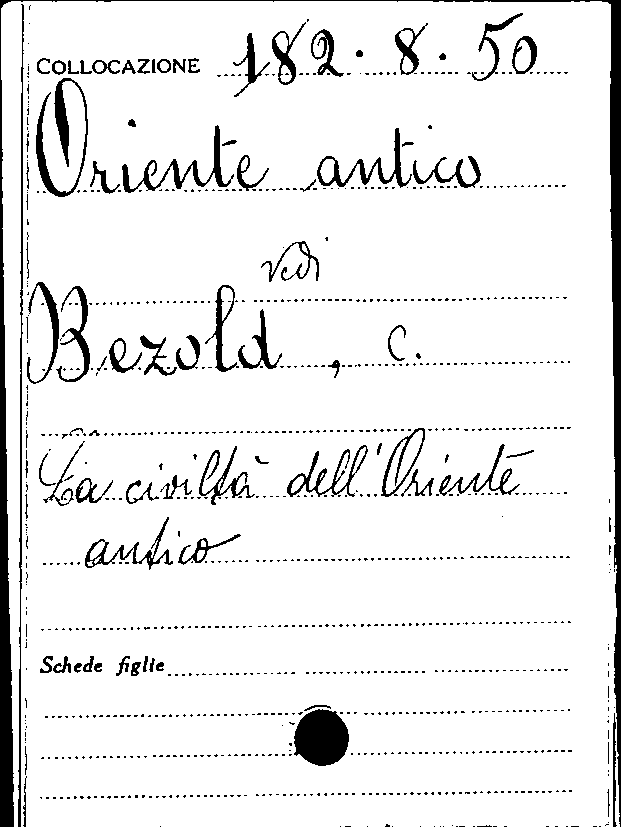 COLLOCAZIONE 182. 8. 50
Oriente antico
vedi
Bezold, C.
La civiltà dell'Oriente
antico
Schede figlie